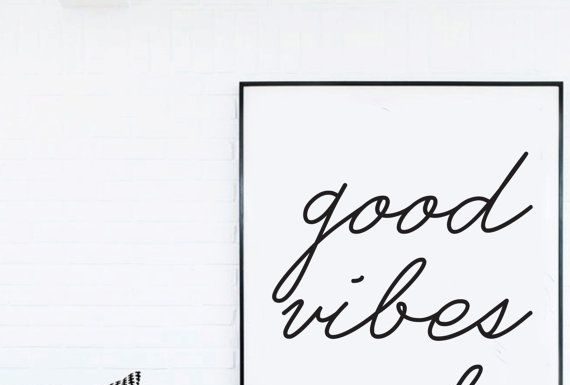 good
vibes